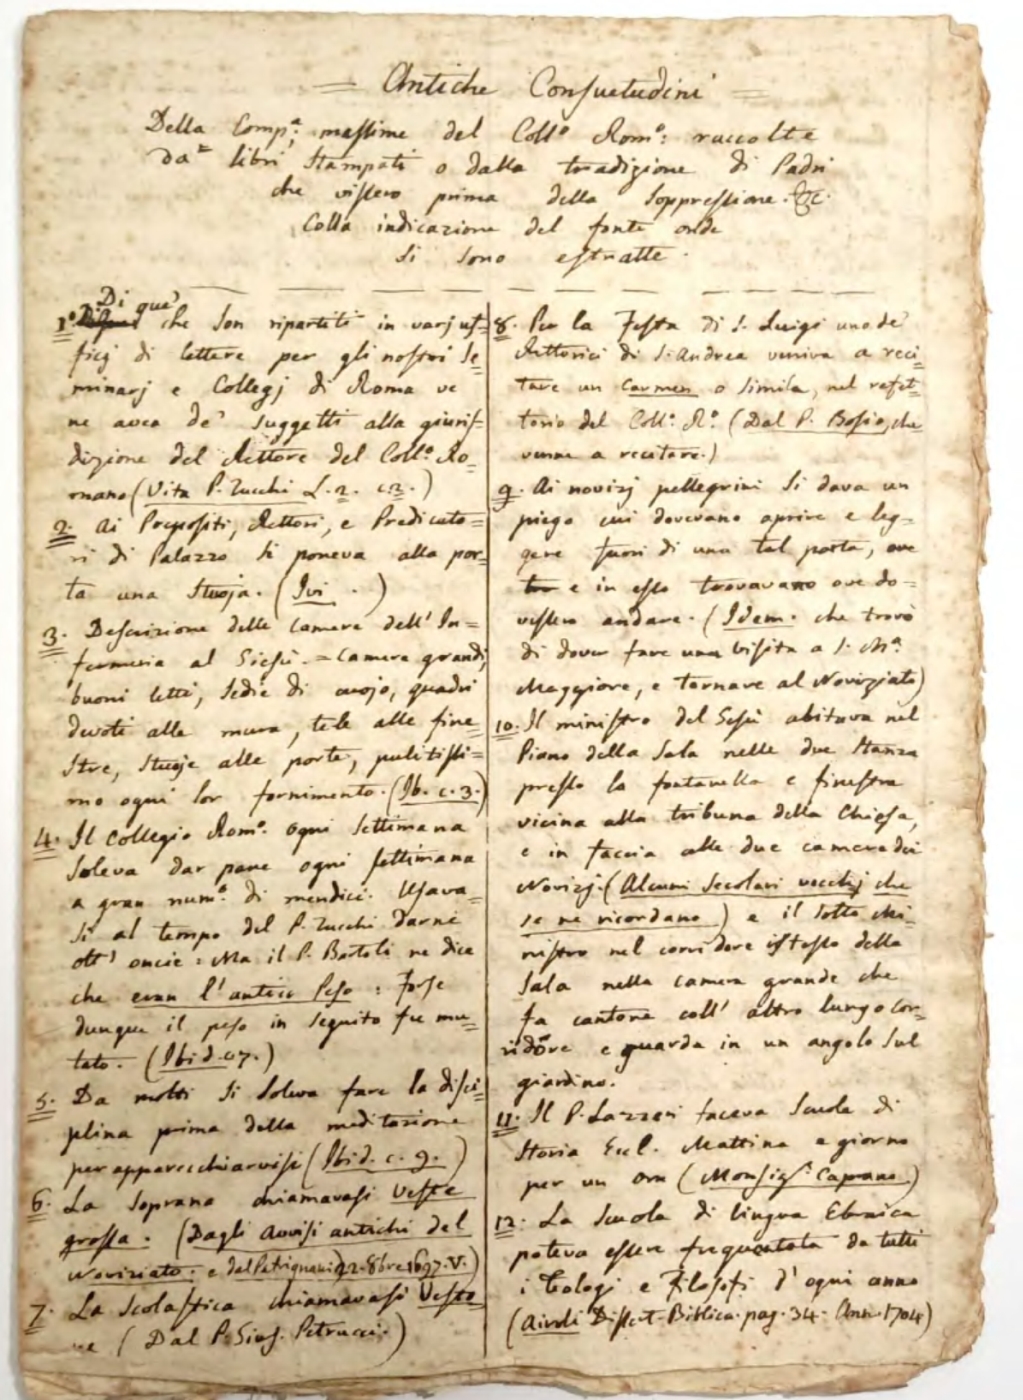 = Antiche Consuetudini =
Della Comp.ª; massime del Coll.º Rom.º: raccolte
da= libri stampati o dalla tradizione di Padri
che vissero prima della Soppressione. &c.
Colla indicazione del fonte onde
si sono estratte.
Di que'
1º che son ripartiti in varj uf=
ficj di lettere per gli nostri Se
minarj e Collegj di Roma ve
ne avea de' suggetti alla giuris-
dizione del Rettore del Coll.º Ro=
mano (Vita P. Zucchi L. 2. c. 2.)
2. Ai Prepositi, Rettori, e Predicato=
ri di Palazzo si poneva alla por=
ta una Stuoja. (Ivi .)
3. Descrizione delle Camere dell' In=
fermeria al Giesù. = Camere grandi,
buoni letti, sedie di cuojo, quadri
devoti alle mura, tele alle fine
stre, stuoje alle porte, pulitissi=
mo ogni lor fornimento. (Ib. c. 3.)
4. Il Collegio Rom.º ogni settimana
soleva dar pane ogni settimana
a gran num.º di mendici. Usava
si al tempo del P. Zucchi darne
ott' oncie: Ma il P. Bartoli ne dice
che eran l'antico peso: Forse
dunque il peso in seguito fu mu=
tato. (Ibid. c. 7.)
5. Da molti si soleva fare la disci
plina prima della meditazione
per apparecchiarvisi (Ibid. c. 9.)
6. La Soprana chiamavasi Veste
grossa. (Dagli Avvisi antichi del
Noviziato: e dal Petrignani 22. 8bre 1697. V.)
7. La Scolastica chiamavasi Vesta
ne (Dal P. Gius. Petrucci.)
8. Per la Festa di S. Luigi uno de'
Rettorici di S. Andrea veniva a reci=
tare un Carmen o simile, nel refet=
torio del Coll.º R.º (Dal P. Bosio, che
venne a recitare.)
9. Ai novizj pellegrini si dava un
piego cui dovevano aprire e leg=
gere fuori di una tal porta, ove
tro e in esso trovavano ove do=
vessero andare. (Idem. che trovò
di dover fare una visita a S. M.ª
Maggiore, e tornare al Noviziato)
10. Il ministro del Gesù abitava nel
Piano della Sala nelle due stanze
presso la fontanella e finestra
vicina alla tribuna della Chiesa,
e in faccia alle due camere dei
Novizj. (Alcuni Secolari vecchi che
se ne ricordano) e il Sotto Mi=
nistro nel corridore istesso della
Sala nella camera grande che
fa cantone coll' altro lungo cor=
ridore e guarda in un angolo sul
giardino.
11. Il P. Lazzeri faceva Scuola di
Storia Eccl. Mattina e giorno
per un ora (Monsig.r Caprano)
12. La Scuola di lingua Ebraica
poteva essere frequentata da tutti
i Teologi e Filosofi d'ogni anno
(Airoli Dissert. Biblica. pag. 34. Ann. 1704)